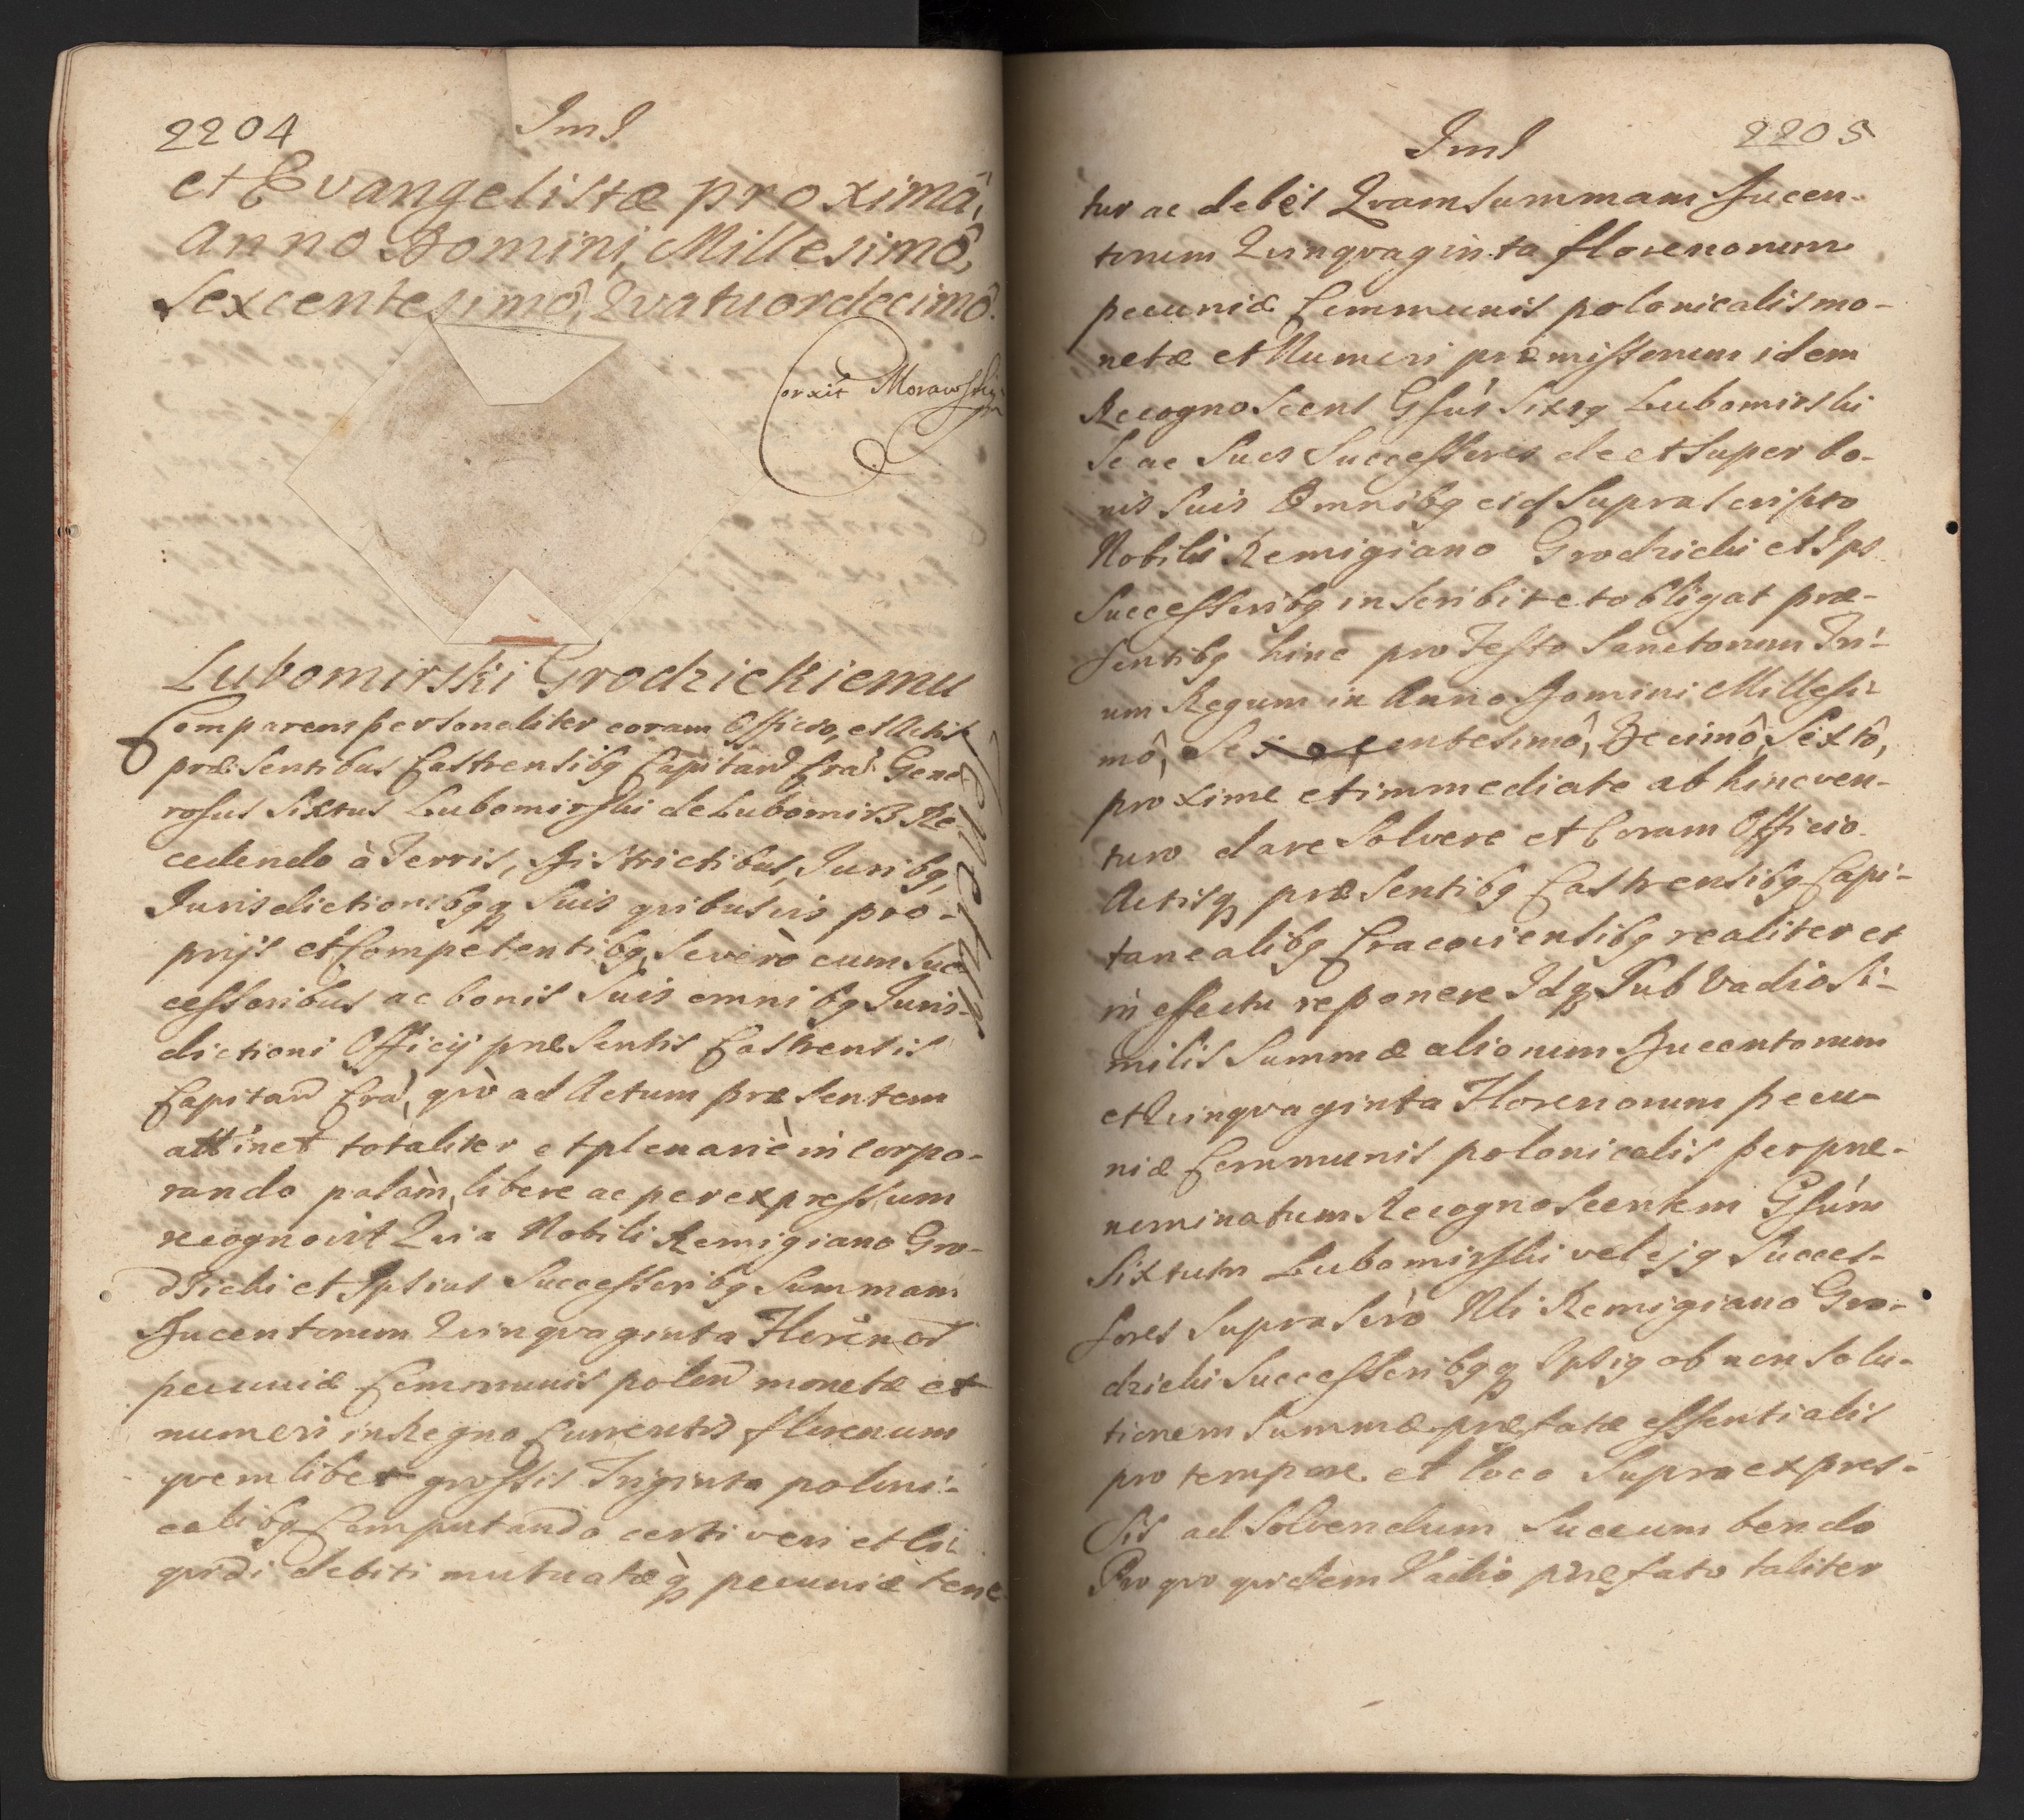 2204
Ims
et Evangelistæ proximâ,
Anno Domini, Millesimô,
Sexcentesimô, Qvatuordecimô.
Corxit Morawski
Lubomirski Grodzickiemu
Comparens personaliter coram Officio, et Actis
præsentibus Castrensibq Capitan Cra Gene
rosus Sixtus Lubomirski de Lubomirz Re
cedendo à Terris, Districtibus, Juribq,
Jurisdictionibqq Suis qvibusvis pro-
prijs et Competentibq, Severò cum Suc
cessoribus ac bonis Suis omnibq Juris-
dictioni Officij præsentis Castrensis
Capitan Cra, qvò ad Actum præsentem
attinet totaliter et plenariè incorpo-
rando palàm, libere ac per expressum
recognovit Qvia Nobili Remigiano Gro-
dzicki et Ipsius Successoribq Summam
Ducentorum Qvinqvaginta Floreno
pecuniæ Communis polon monetæ et
numeri in Regno Currentis florenum
qvemlibet grossis Triginta poloni-
calibq Computando certi veri et li-
qvidi debiti mutuatæq pecuniæ tene
2205
Ims
tur ac debet Qvam Summam Ducen-
torum Qvinqvaginta florenorum
pecuniæ Communis polonicalis mo-
netæ et Numeri præmissorum idem
Recognoscens Gsus Sixtq Lubomirski
Se ac Suos Successores de et Super bo-
nis Suis Omnibq eid Suprascripto
Nobili Remigiano Grodzicki et Ips
Successoribq inscribit et obligat præ-
sentibq hinc pro Festo Sanctorum Tri-
um Regum in Anno Domini Millesi-
mô, Sexcentesimô, Decimô, Sextô,
proxime et immediate ab hinc ven-
turo dare Solvere et Coram Officio
Actisq præsentibq Castrensibq Capi-
tanealibq Cracoviensibq realiter et
in effectu reponere Idq Sub Vadio Si-
milis Summæ aliorum Ducentorum
et Qvinqvaginta Florenorum pecu-
niæ Communis polonicalis per præ-
nominatum Recognoscentem Gsum
Sixtum Lubomirski vel ejq Succes-
sores Suprascro Nli Remigiano Gro-
dzicki Successoribqq Ipsiq ob non Solu-
tionem Summæ præfatæ essentialis
pro tempore et loco Supra expres-
sis ad Solvendum Succumbendo
Pro qvo qvidem Vadio præfato taliter